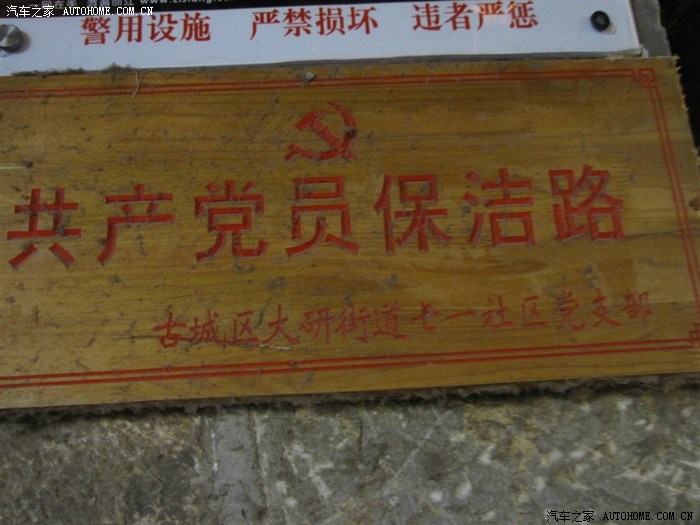 汽车之家 AUTOHOME.COM.CN
警用设施 严禁损坏 违者严惩
共产党员保洁路
古城区大研街道七一社区党支部
汽车之家 AUTOHOME.COM.CN